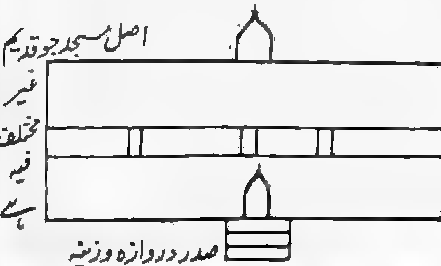 اصل مسجد جو قدیم
غیر
مختلف
فیہ
ہے
صدر دروازہ وزینہ